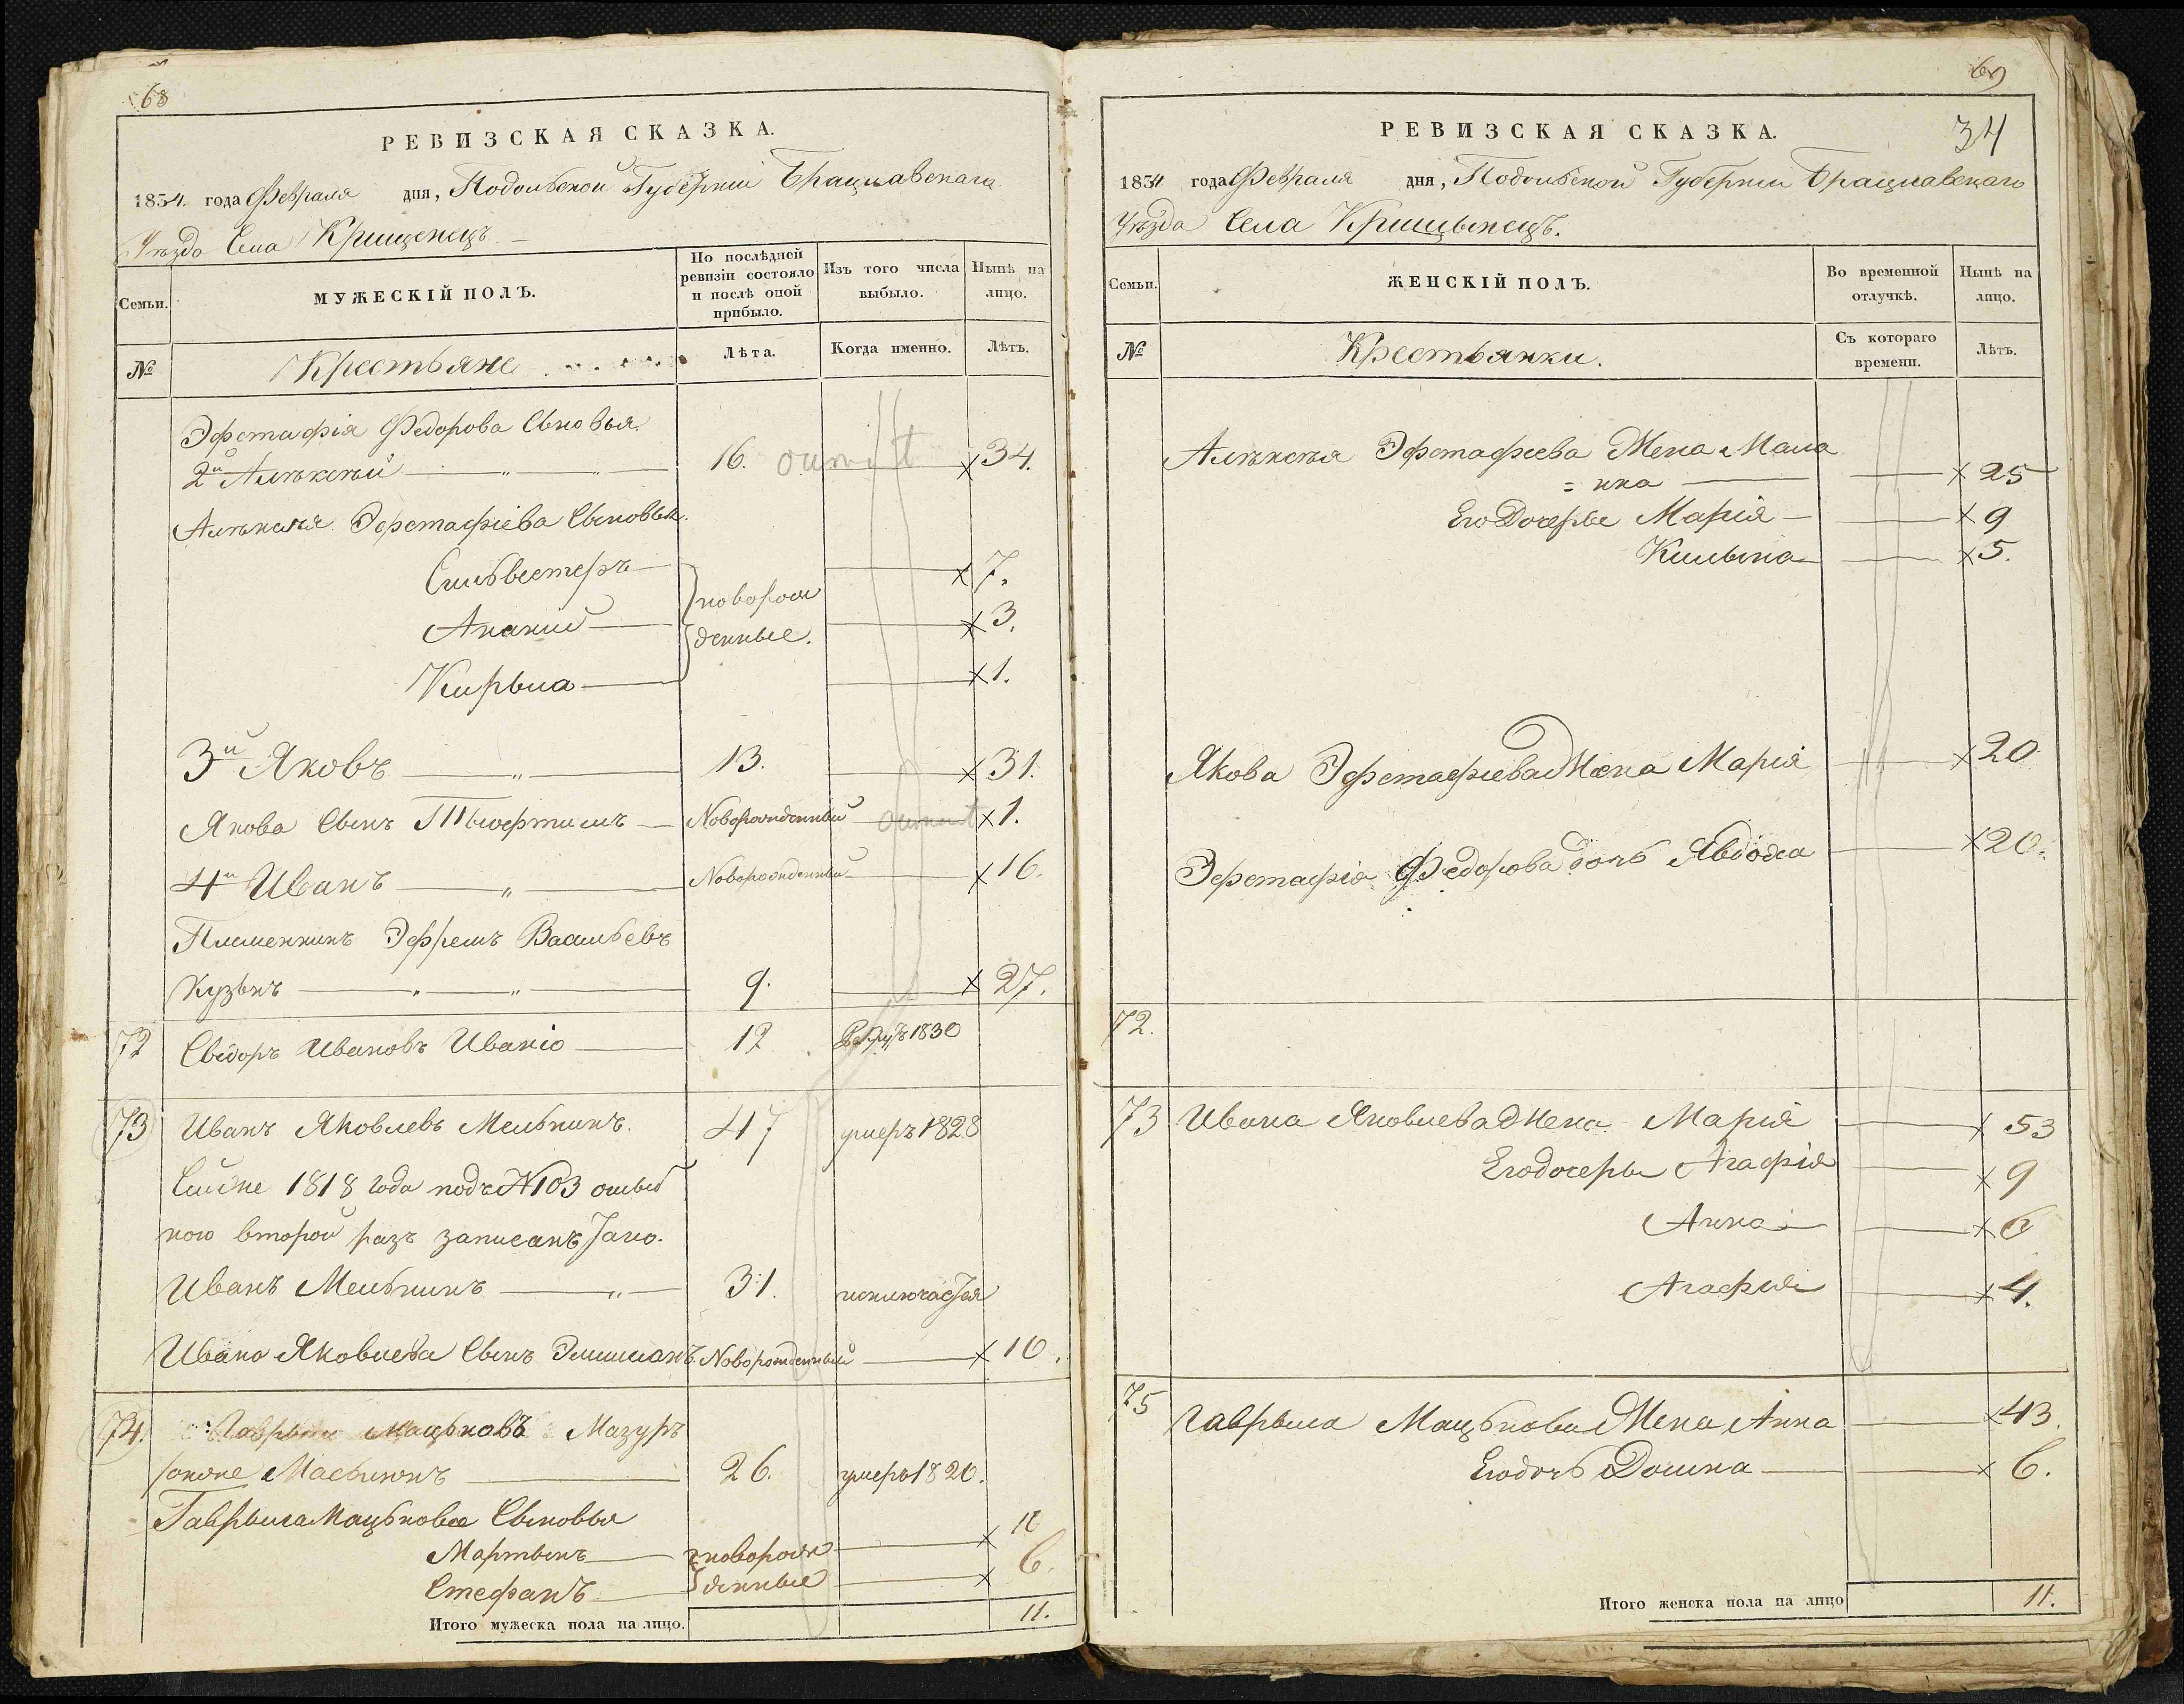 68
РЕВИЗСКАЯ СКАЗКА.
1834. года Февраля дня, Подольской Губерніи Брацлавскаго
Уѣзда Села Крищенецъ
Семьи.
МУЖЕСКІЙ ПОЛЪ.
По послѣдней ревизіи состояло и послѣ оной прибыло.
Изъ того числа выбыло.
Нынѣ на лицо.
№
Крестьяне
Лѣта.
Когда именно.
Лѣтъ.
Эфстафія Федорова Сыновья
2й Алѣксѣй 16. 34.
Алѣксѣя Эфстафіева Сыновья
Сильвестеръ 7.
новорож
Ананий 3.
денные.
Кирыла 1.
3й Яковъ 13. 31.
Якова Сынъ Новорожденный 1.
4й Иванъ Новорожденный 16.
Племенникъ Эфремъ Васильевъ
Кузынъ 9. 27.
72 Свѣдоръ Ивановъ Иваніо 12 1830
73 Иванъ Яковлевъ Мельникъ. 47 умеръ 1828
1818 года подъ №103 ошыб
кою второй разъ записанъ
Иванъ Мельникъ 31. исключается
Ивана Яковлева Сынъ Эмилианъ Новорожденный 10.
74. Гаврыло Мацьковъ Мазуръ
26. умеръ 1820.
Гаврыла Мацькова Сыновья
Мартынъ новорож 10
Стефанъ денные 6.
Итого мужеска пола на лицо. 11.
69
34
РЕВИЗСКАЯ СКАЗКА.
1834 года Февраля дня, Подольской Губерніи Брацлавскаго
Уѣзда Села Крищынецъ.
Семьи.
ЖЕНСКІЙ ПОЛЪ.
Во временной отлучкѣ.
Нынѣ на лицо.
№
Крестьянки.
Съ котораго времени.
Лѣтъ.
Алѣксѣя Эфстафіева Жена Мала
= нка 25
Его Дочерье Марія 9
Килына 5.
Якова Эфстафіева Жена Марія 20
Эфстафія Федорова дочь Явдоха 20.
72.
73 Ивана Яковлева Жена Марія 53
Его дочеры Агафія 9
Анна 6
Агафія 4.
75 Гаврыла Мацькова Жена Анна 43.
Его дочь Домна 6.
Итого женска пола на лицо 11.